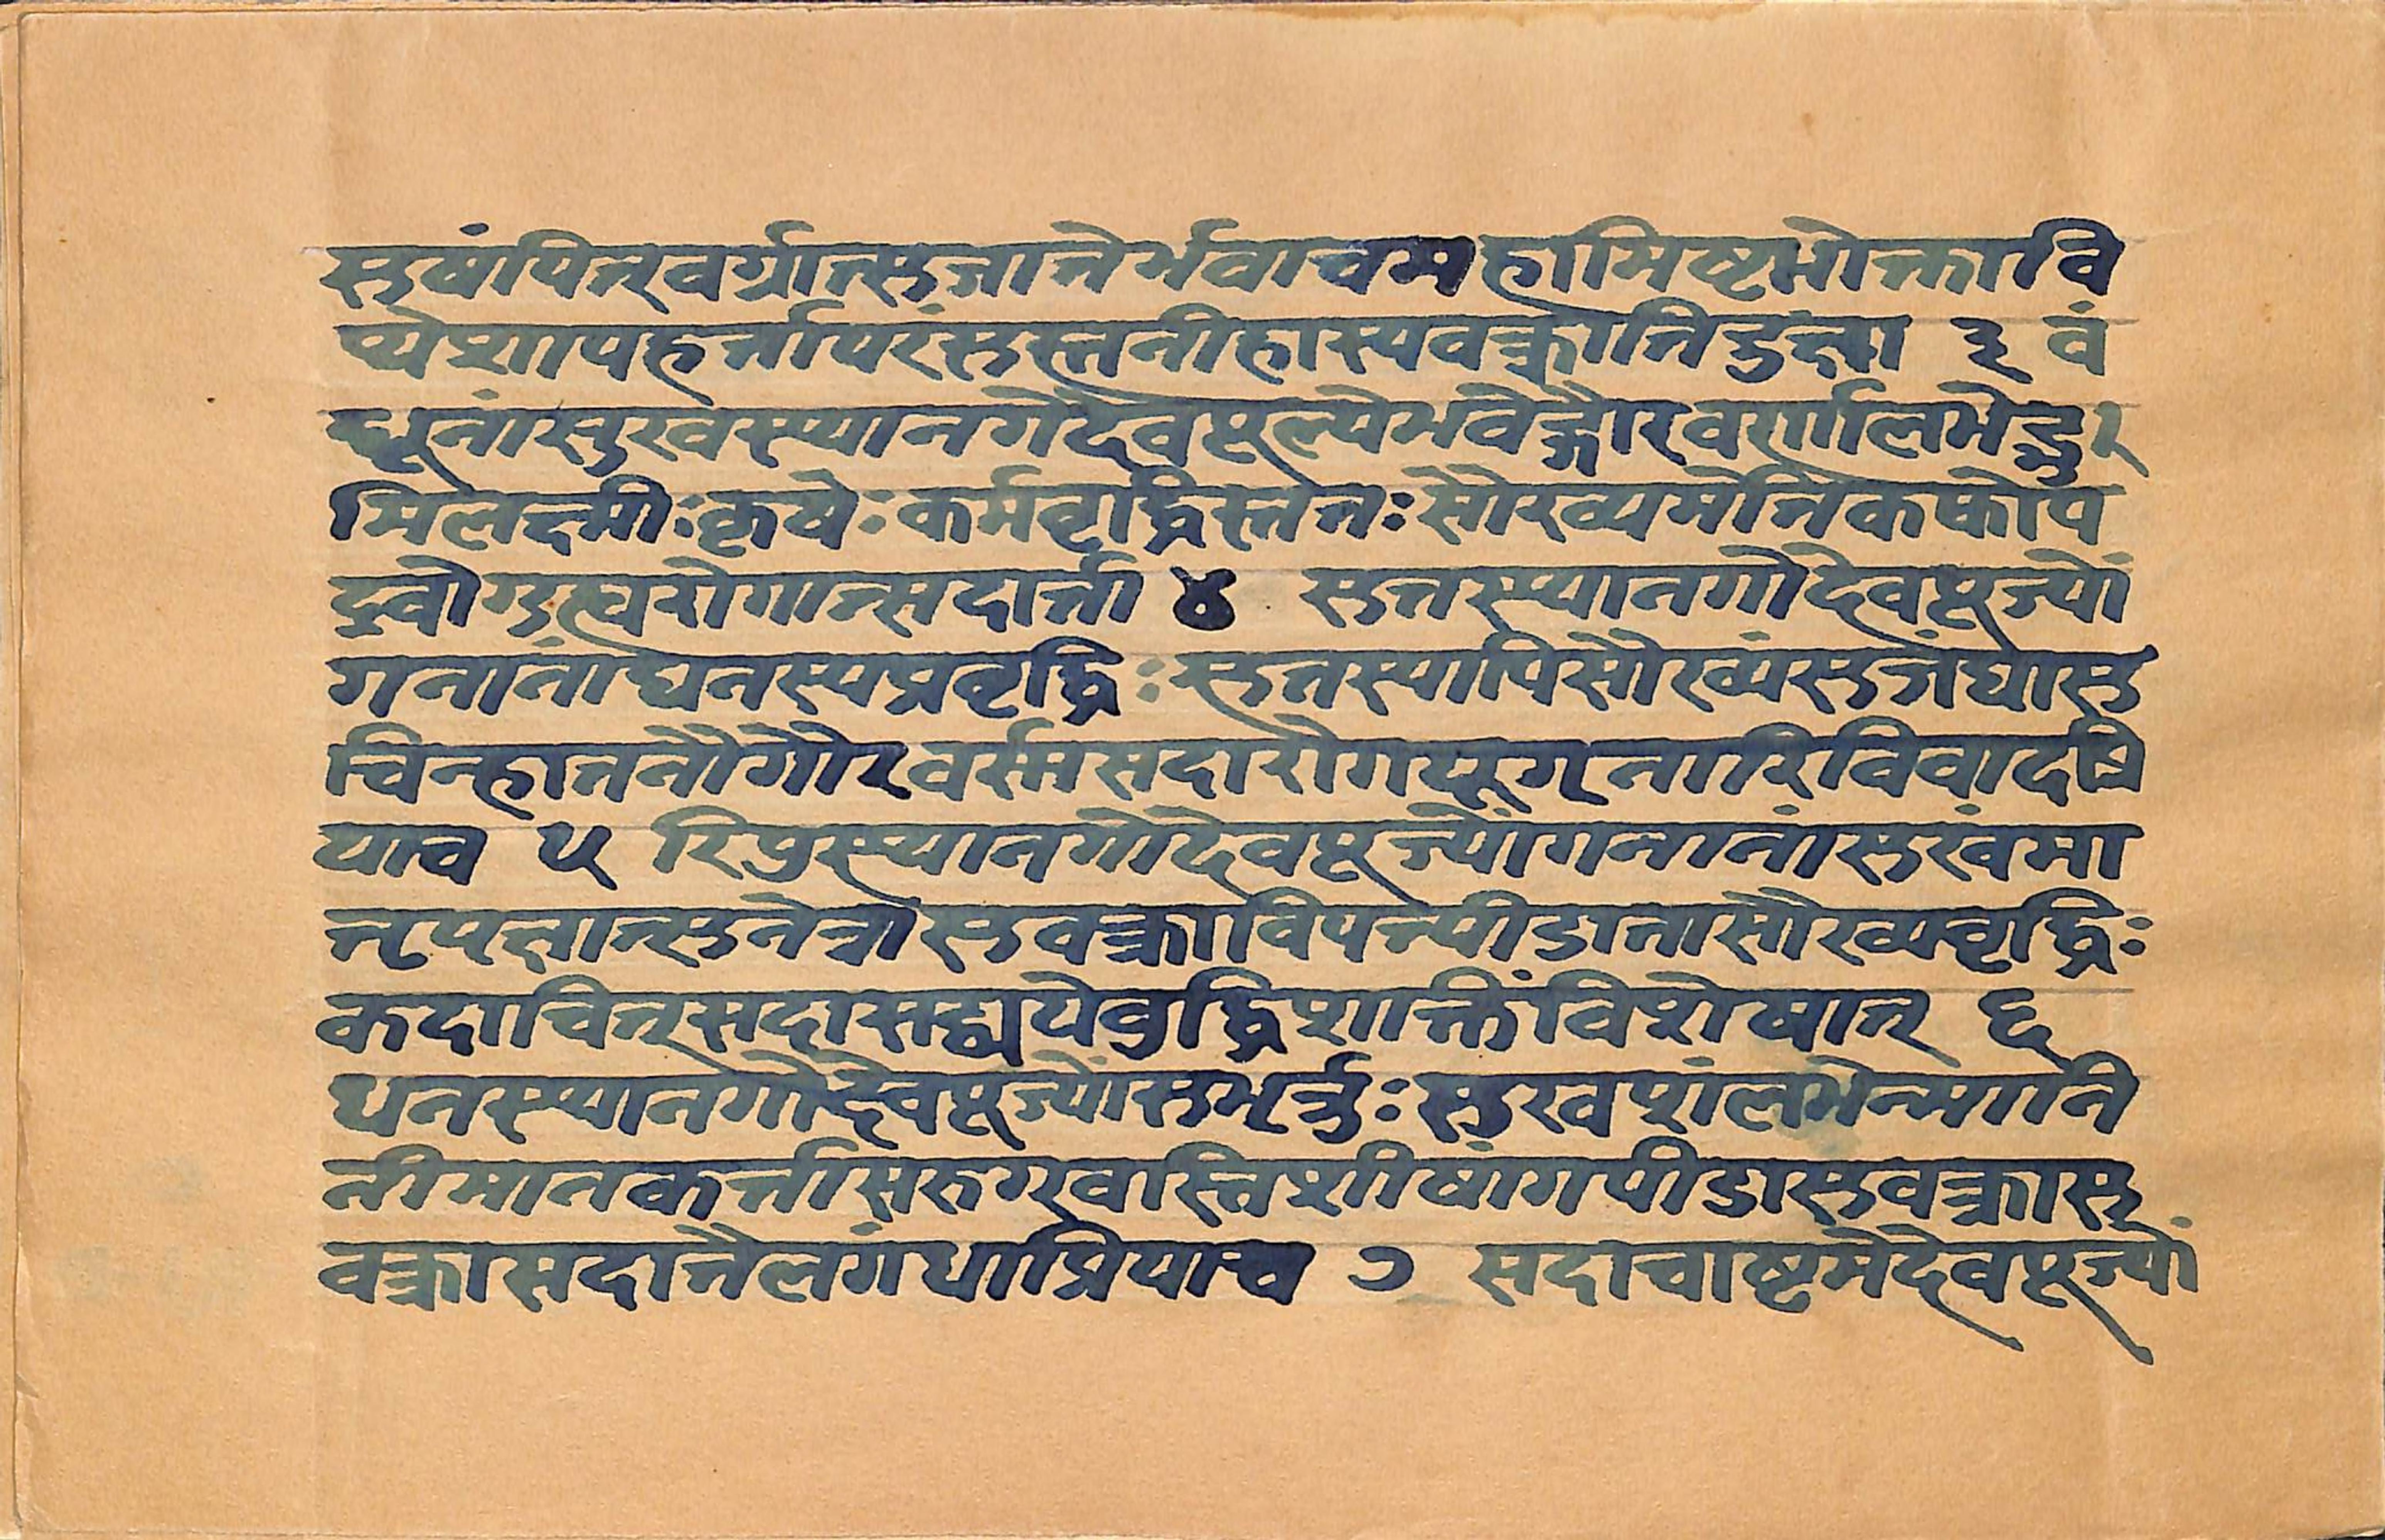 सुषंपितृवर्गात्सुजातेर्भवाचमहामिष्टभोक्तावि
घ्नेशापहर्त्तापरंसुस्तनीहास्यवक्त्रातिदुःखा ३ वं
धूनांसुखस्थानगेदेवपूज्येभवेद्गौरवर्णालभेद्भू
मिलक्ष्मीःकृषेःकर्मवृद्धिस्ततःसौख्यमेतिकफोप
द्रवोगुत्वरोगात्सदार्त्ता ४ सुतस्थानगोदेवपूज्यों
गनानांधनस्यप्रवृद्धिःसुतस्यापिसौख्यंसुजंघासु
चिन्हाततनौगौरवर्स्मसदारोगयूग्नारिविवादप्रि
याच ५ रिपुस्थानगोदेवपूज्योंगनानांसुखंमा
तृपक्षात्सुनेत्रासुवक्त्राविपत्पीडातासौख्यवृद्धिः
कदाचित्सदासद्व्ययेबुद्धिशक्तिंविशेषात् ६
धनस्थानगोदेवपूज्योंसभर्त्तुःसुखंशंलभेन्मानि
नीमानकर्त्तासरुग्वस्तिशीर्षांगपीडासुवक्त्रासु
वक्त्रासदातैलगंधाप्रियाच ७ सदाचाष्टमेदेवपूज्यों